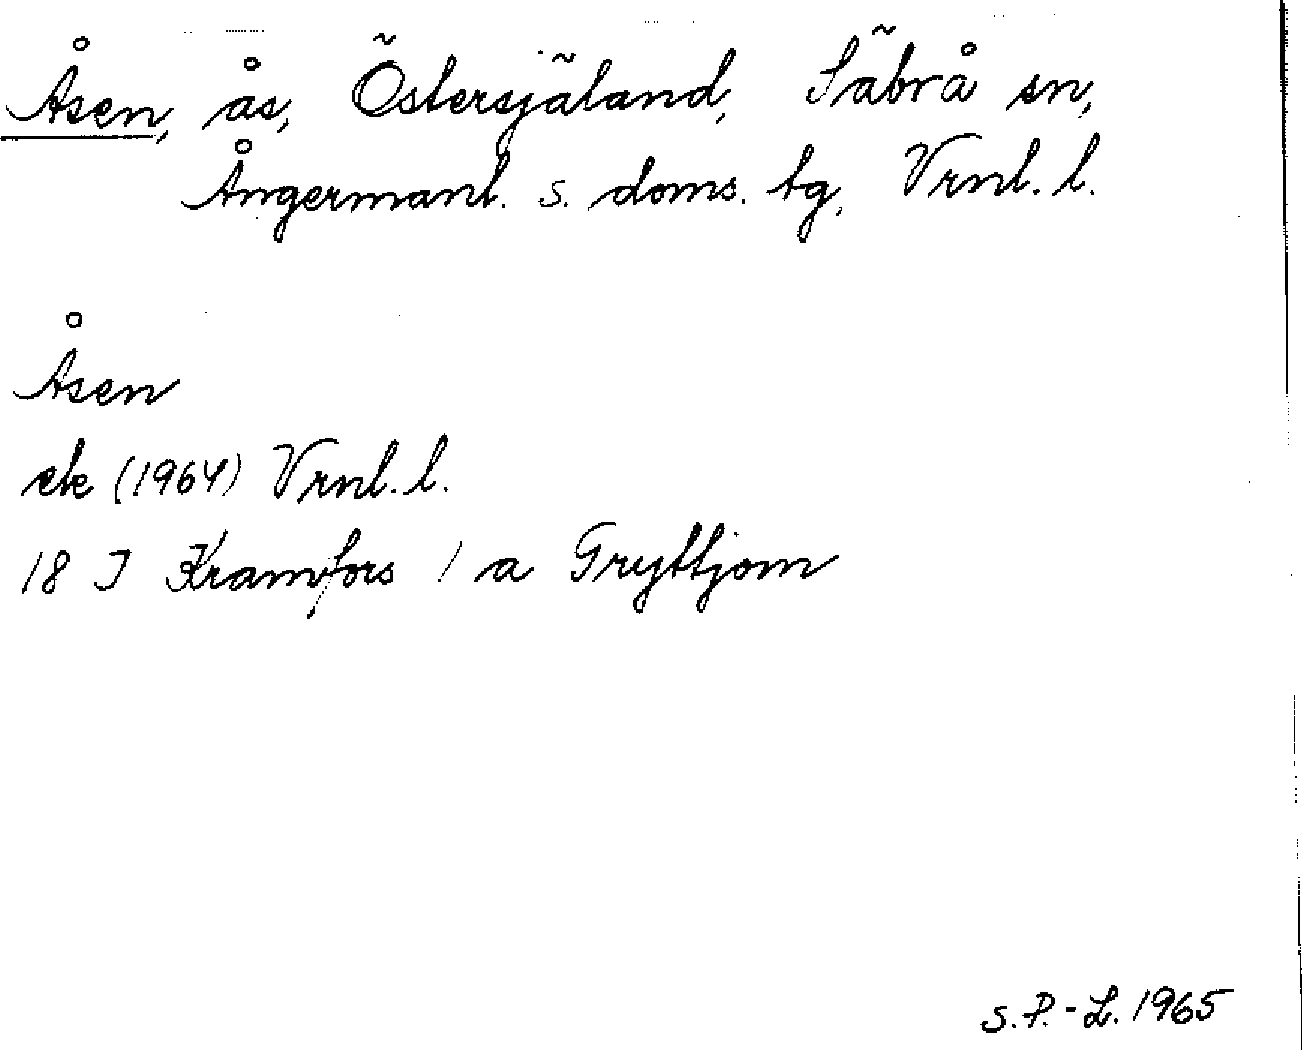 Åsen, ås, Östersjäland, Säbrå sn,
Ångermanl. s. doms. tg, Vrnl. l.
Åsen
ek (1964) Vrnl. l.
18 I Kramfors / a Gryttjom
S.P.-L. 1965